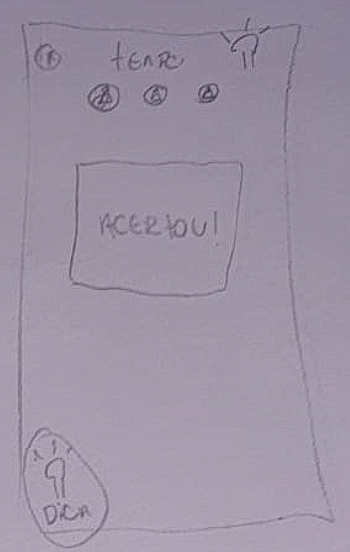 tempo
ACERTOU!
DiCA